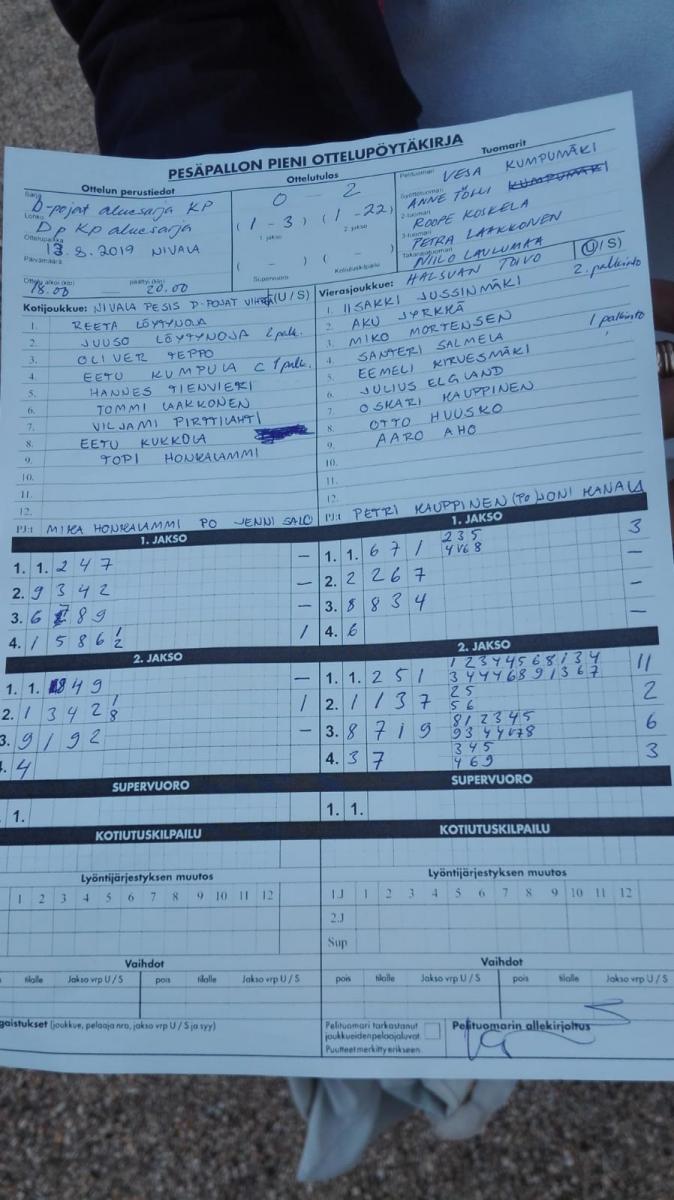 PESÄPALLON PIENI OTTELUPÖYTÄKIRJA
Ottelun perustiedot
Ottelutulos
Tuomarit
Sarja D-pojat aluesarja KP
Lohko Dp KP aluesarja
Ottelupaikka
Päivämäärä 13.8.2019 NIVALA
Ottelu alkoi (klo) 18.00 päättyi (klo) 20.00
0 - 2
(1 - 3) (1 - 22)
1. jakso 2. jakso
( - ) ( - )
Supervuoro Kotiutuskilpailu
Pelituomari VESA KUMPUMÄKI
Syöttötuomari ANNE TÖLLI KUMPUMÄKI
2-tuomari ROOPE KOSKELA
3-tuomari PETRA LAAKKONEN
Takarajatuomari NIILO LAULUMAA
Kotijoukkue: NIVALA PESIS D-POJAT VIHREÄ (U / S)
1. REETA LÖYTYNOJA
2. JUUSO LÖYTYNOJA 2 palk.
3. OLIVER TEPPO
4. EETU KUMPULA C 1 palk.
5. HANNES TIENVIERI
6. TOMMI LAAKKONEN
7. VILJAMI PIRTTILAHTI
8. EETU KUKKOLA
9. TOPI HONKALAMMI
10.
11.
12.
PJ:t MIKA HONKALAMMI PO JENNI SALO
Vierasjoukkue: HALSUAN TOIVO (U / S)
1. IISAKKI JUSSINMÄKI 2. palkinto
2. AKU JYRKKÄ
3. MIKO MORTENSEN
4. SANTERI SALMELA 1 palkinto
5. EEMELI KIRVESMÄKI
6. JULIUS ELGLAND
7. OSKARI KAUPPINEN
8. OTTO HUUSKO
9. AARO AHO
10.
11.
12.
PJ:t PETRI KAUPPINEN (PO) JONI KANALA
1. JAKSO
1. 1. 2 4 7 –
2. 9 3 4 2 –
3. 6 7 8 9 –
4. 1 5 8 6 1 1
2
1. JAKSO
1. 1. 6 7 1 2 3 5 3
4 6 8
2. 2 2 6 7 –
3. 8 8 3 4 –
4. 6 –
2. JAKSO
1. 1. 8 4 9 –
2. 1 3 4 2 1 1
8
3. 9 1 9 2 –
4. 4
2. JAKSO
1. 1. 2 5 1 1 2 3 4 4 5 6 8 1 3 4 11
3 4 4 4 6 8 9 1 3 6 7
2. 1 1 3 7 2 5 2
5 6
3. 8 7 1 9 8 1 2 3 4 5 6
9 3 4 4 6 7 8
4. 3 7 3 4 5 3
4 6 9
SUPERVUORO
1.
SUPERVUORO
1. 1.
KOTIUTUSKILPAILU
KOTIUTUSKILPAILU
Lyöntijärjestyksen muutos
1 2 3 4 5 6 7 8 9 10 11 12
Lyöntijärjestyksen muutos
1J 1 2 3 4 5 6 7 8 9 10 11 12
2.J
Sup
Vaihdot
tilalle Jakso vrp U / S pois tilalle Jakso vrp U / S
Vaihdot
pois tilalle Jakso vrp U / S pois tilalle Jakso vrp U / S
gaistukset (joukkue, pelaaja nro, jakso vrp U / S ja syy)
Pelituomari tarkastanut
joukkueiden pelaajaluvat.
Puutteet merkitty erikseen.
Pelituomarin allekirjoitus